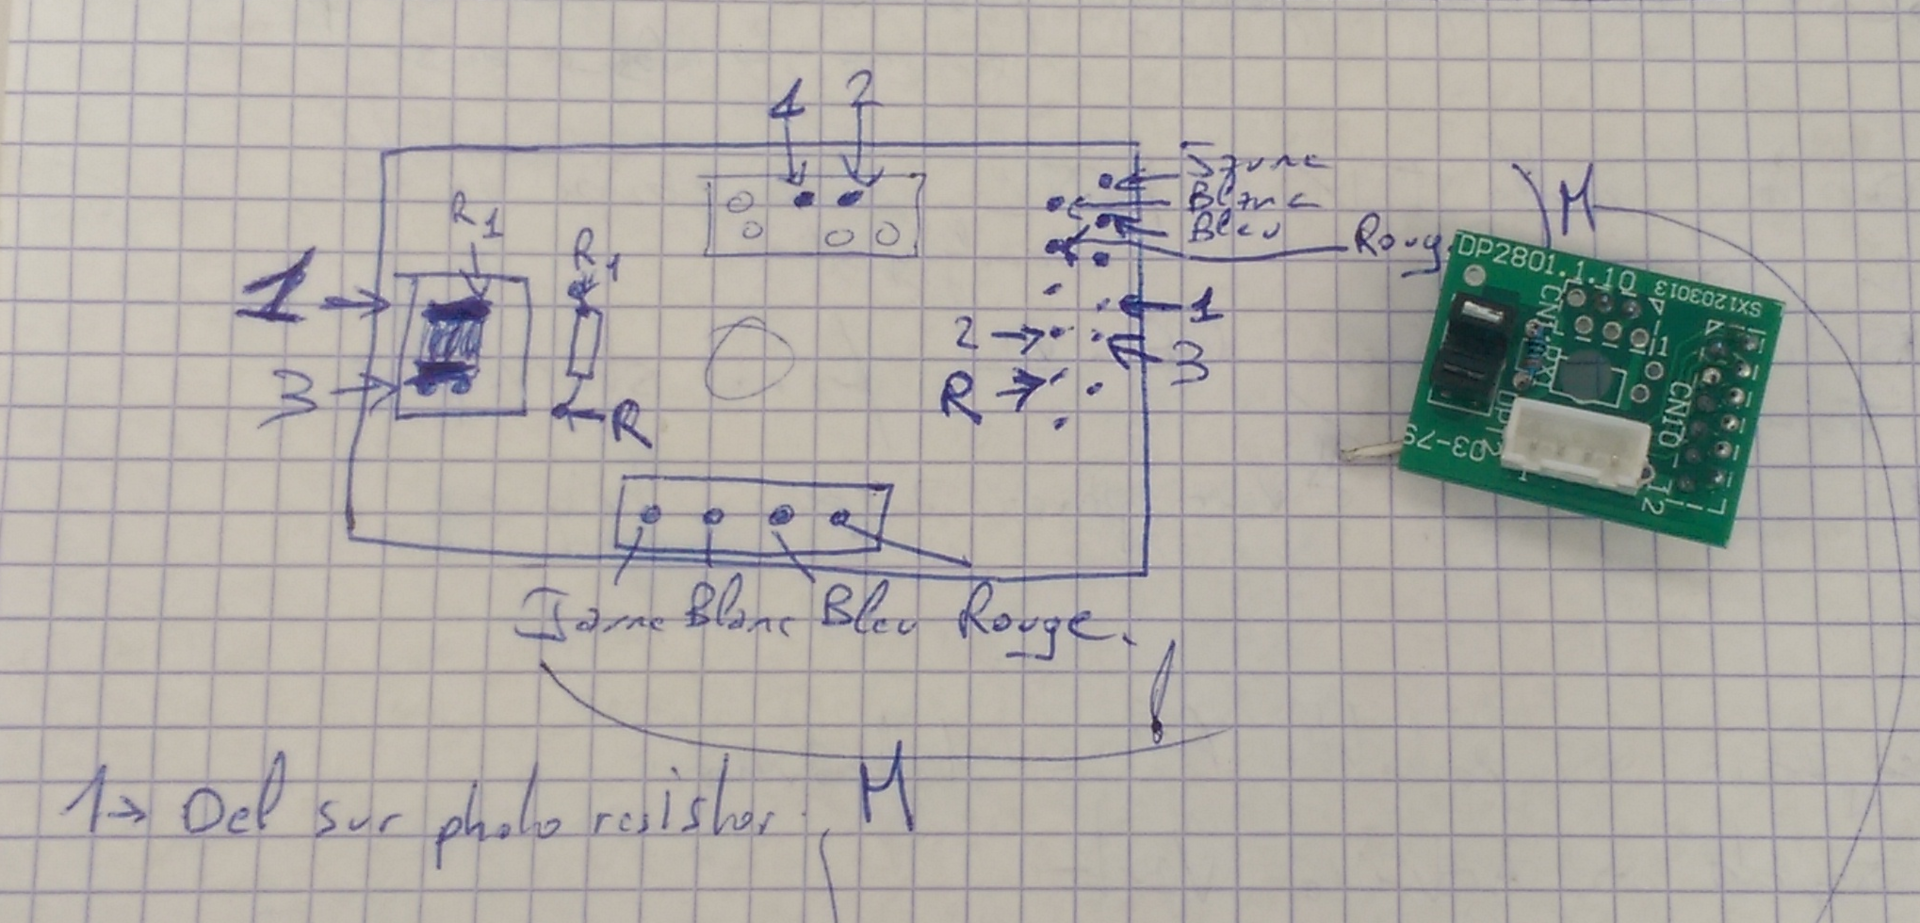 1 2
Jaune
Blanc
Bleu
Rouge
M
R1
R1
1
3
R
1
2
3
R
DP2801.1.10
SX1203013
CN1
RX1
1
CN10
OPT2
03-7S
12
1
Jaune Blanc Bleu Rouge.
!
M
1→ Del sur photo resistor.